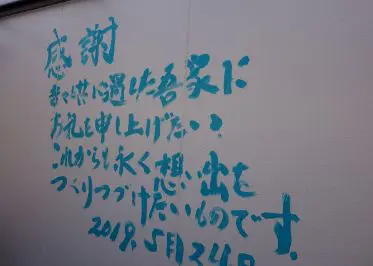 感謝
共に過した吾家に
お礼を申し上げたい。
これからも永く想い出を
つくりつづけたいものです
2019.5月24日